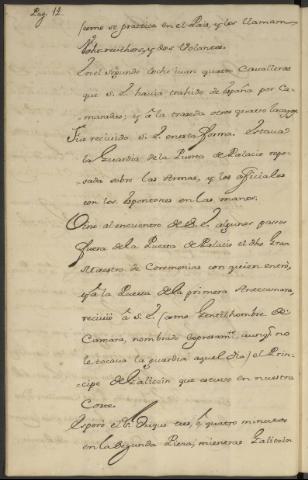 Pag. 12.
(como se practica en el Pais, y les llaman
y dos Volantes.
En el segundo coche iuan quatro Cavalleros
que S. E. havia trahido de España por Ca-
maradas; y a la trasera otros quatro lacayos.
Fue reciuido S. E. en esta forma. Estaua
la Guardia de la Puerta de Palacio repo-
sada sobre las Armas, y los oficiales
con los espontones en las manos.
Vino al encuentro de S. E. algunos passos
fuera de la Puerta de Palacio el dho Gran
Maestro de Ceremonias con quien entrò,
y a la Puerta de la primera Antecamara,
reciuiò a S. E. (como Gentilhombre de
Camara, nombrado expresamte. aunq. no
le tocaua la guardia aquel dia) el Prin-
cipe de Galiczin que estuvo en nuestra
Corte.
Esperò el Sr. Duque tres, ò quatro minutos
en la segunda Pieza, mientras Galiczin